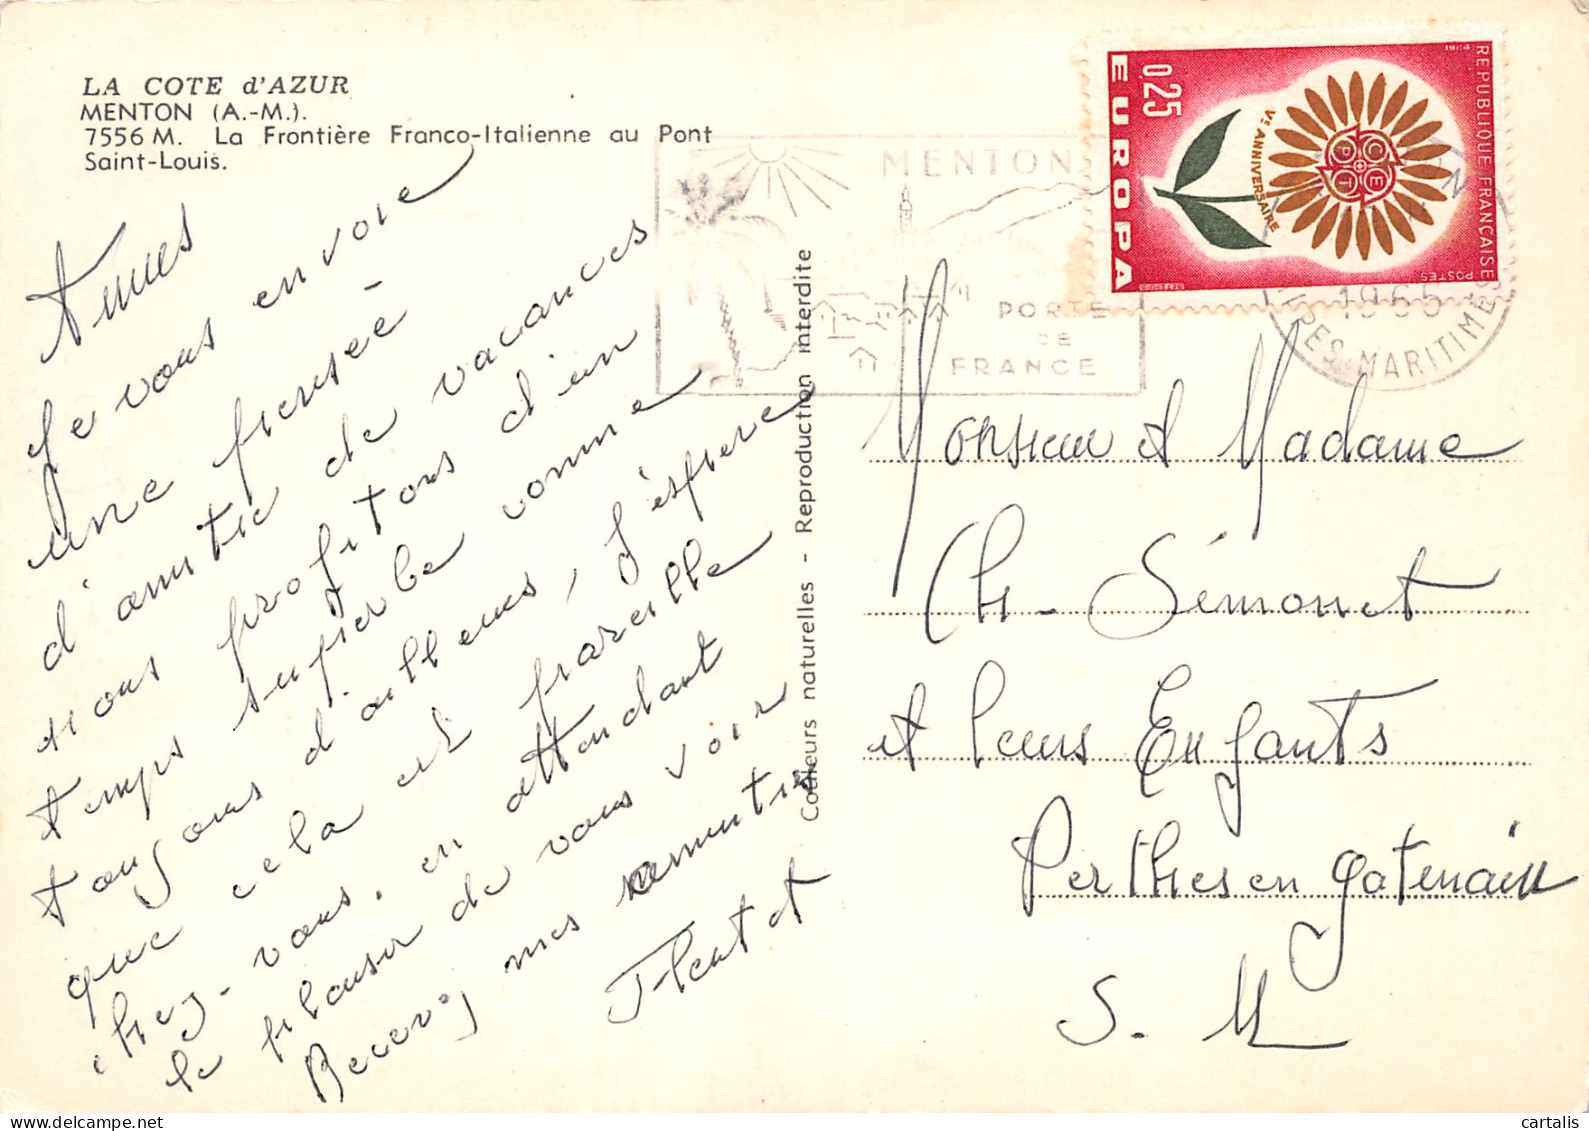 LA COTE d'AZUR
MENTON (A.-M.).
7556 M. La Frontière Franco-Italienne au Pont
Saint-Louis.
Je vous envoie
une pensée
d'amitié de vacances
nous profitons d'un
temps superbe comme
toujours d'ailleurs, j'espère
que cela est pareille
chez-vous. en attendant
le plaisir de vous voir
Recevez mes amitiés
Couleurs naturelles - Reproduction interdite
MENTON
PORTE
DE
FRANCE
1965
MARITIMES
REPUBLIQUE FRANÇAISE
POSTES
1964
0,25
EUROPA
Ve ANNIVERSAIRE
CEPT
Monsieur et Madame
Ch. Sémonet
et leurs Enfants
Perthes en gatinais
S. M
cartalis
delcampe.net